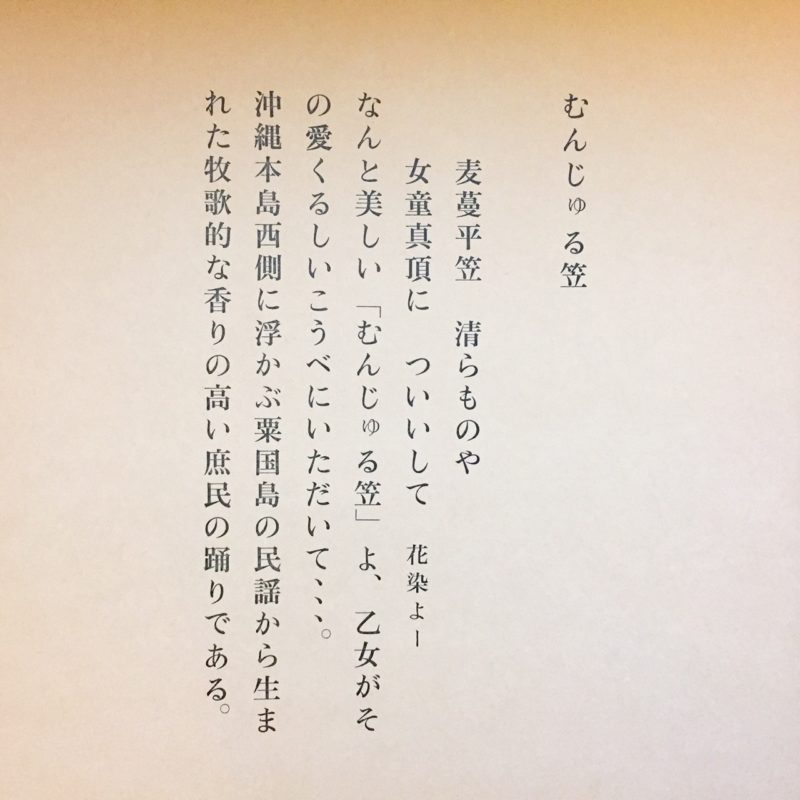 むんじゅる笠
麦蔓平笠　清らものや
女童真頂に　ついいして　花染よー
なんと美しい「むんじゅる笠」よ、乙女がそ
の愛くるしいこうべにいただいて、、、。
沖縄本島西側に浮かぶ粟国島の民謡から生ま
れた牧歌的な香りの高い庶民の踊りである。